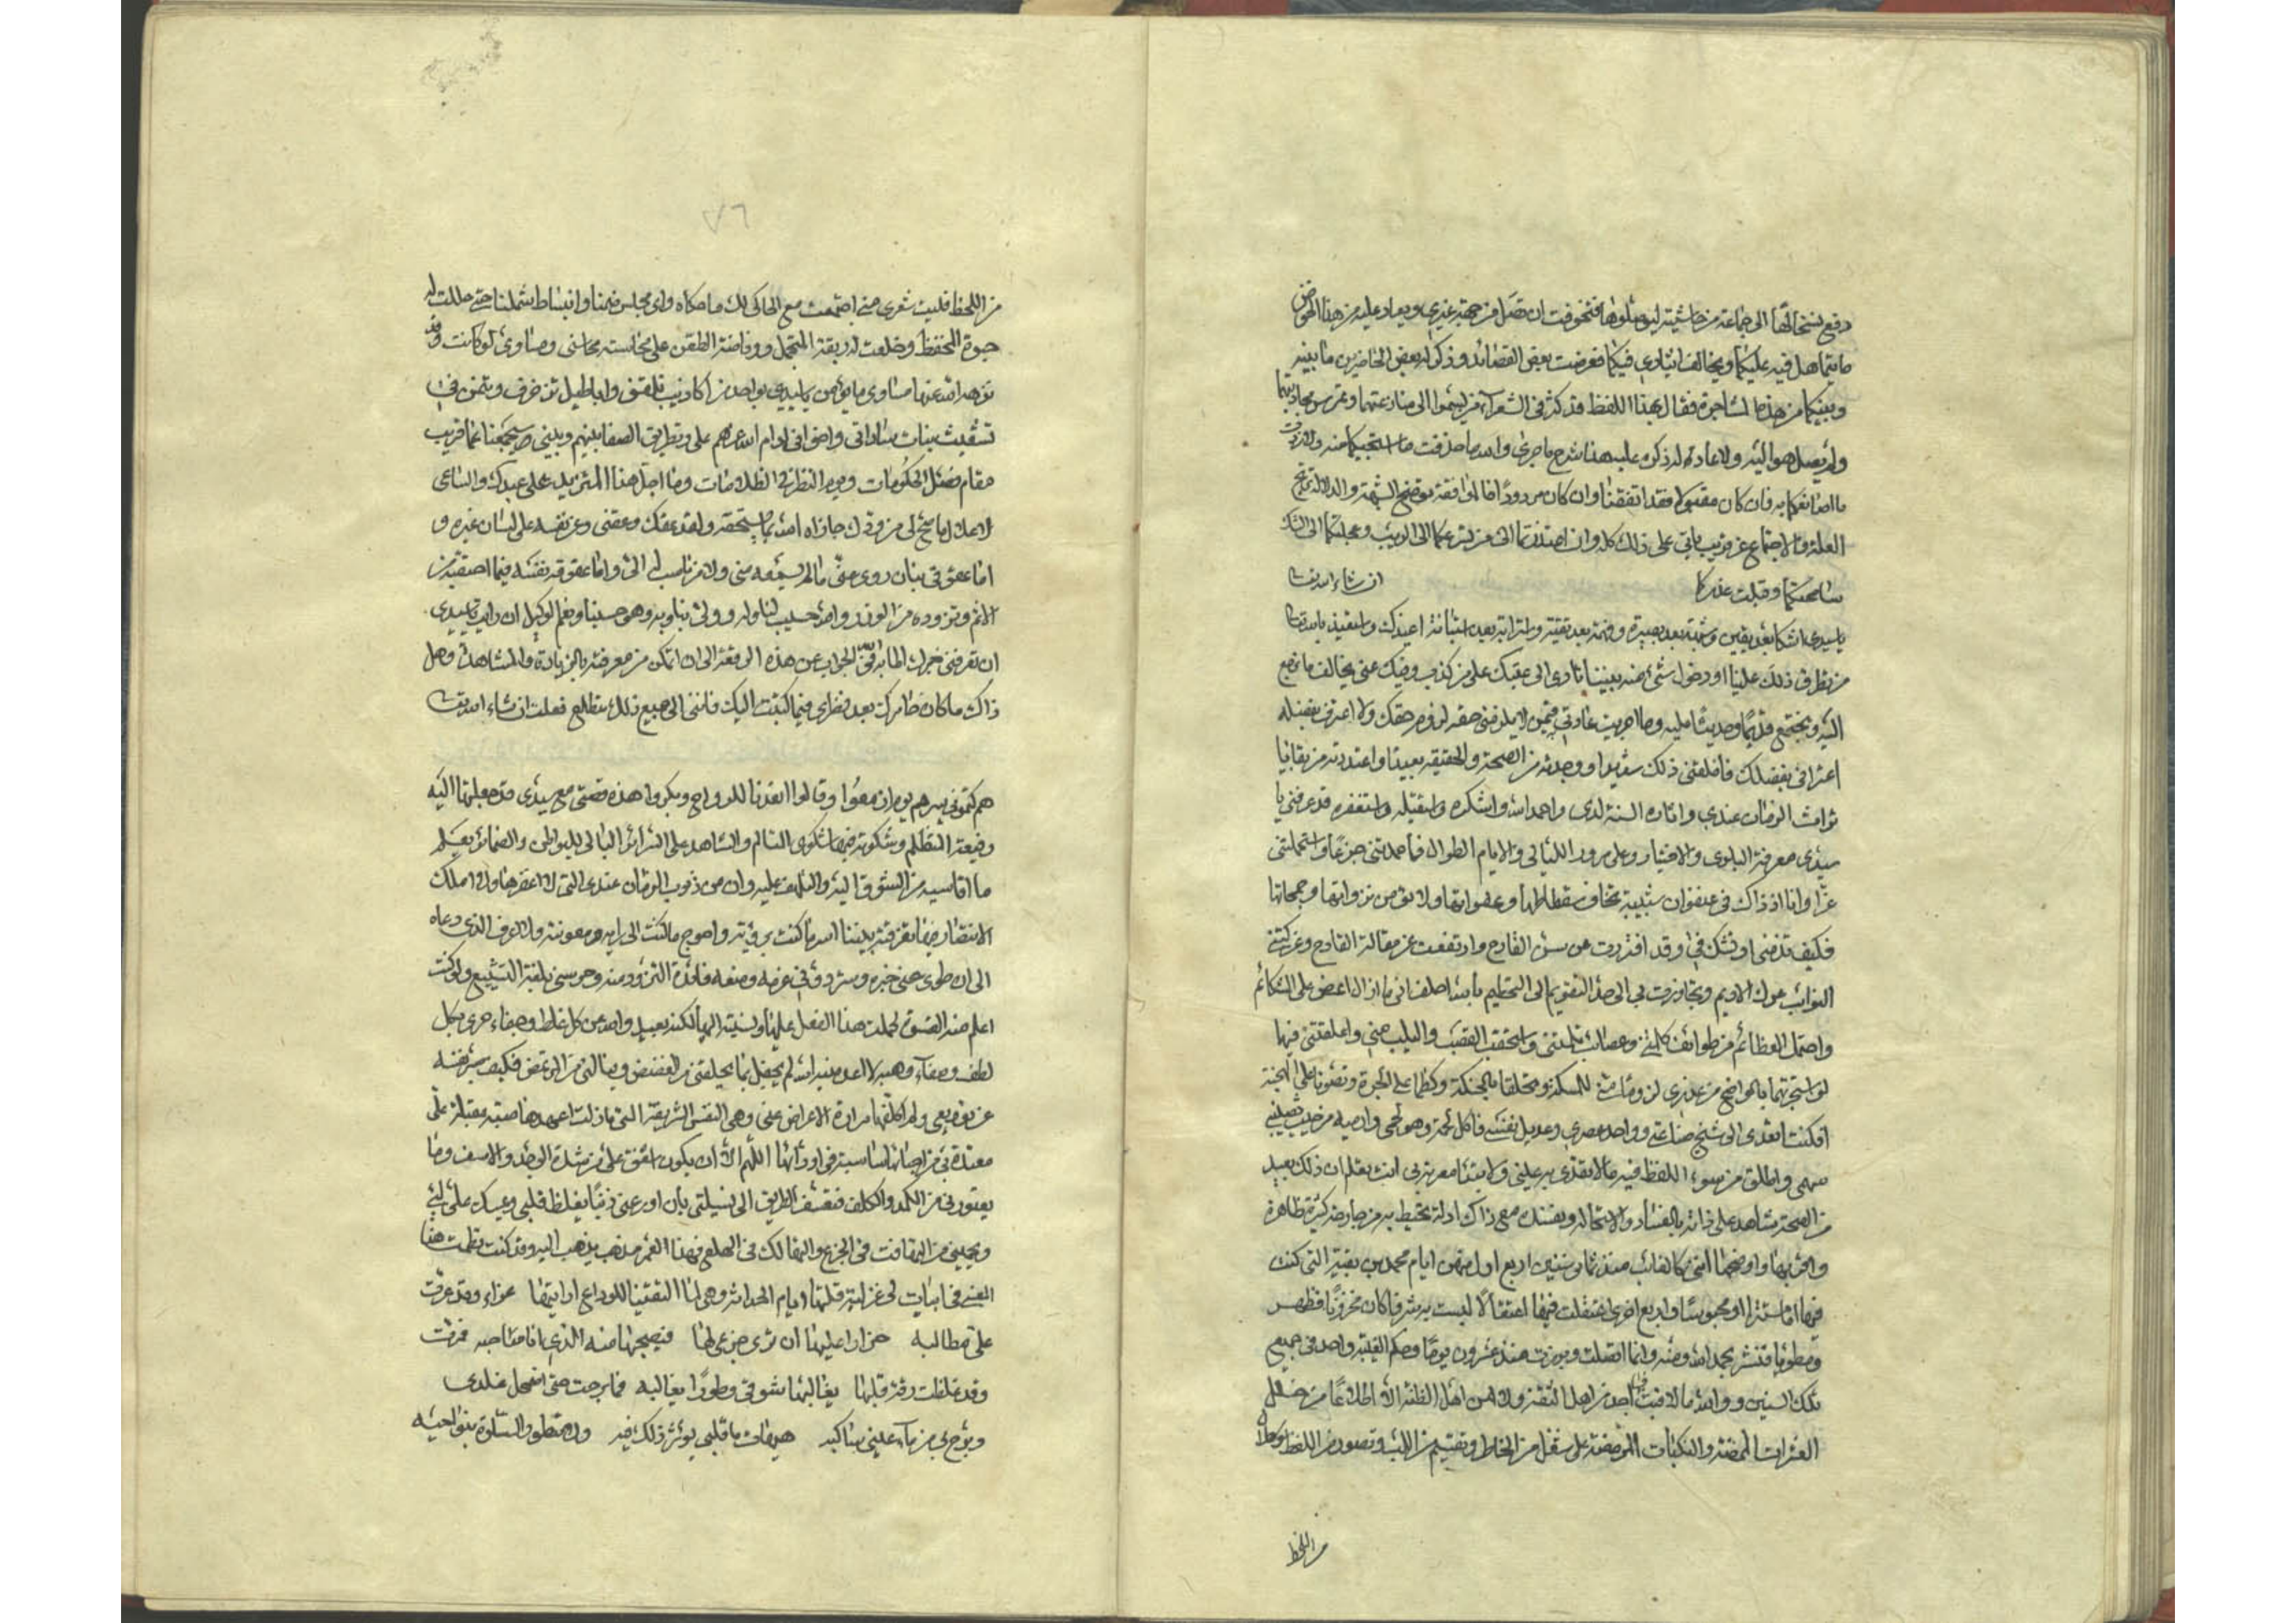 دفع نسختالها الى جماعة من حاشيته ليوصلوها فتخوفت ان تصل من جهة غيري ويعاد عليه من هذا الخوض
ما يتماهل فيه عليكما ويخالف ايثاري فيكما فعرضت بعض القصائد وذكر له بعض الحاضرين ما بينه
وبينكما من هذه المشاجرة فقال بهذا اللفظ قد كثر في الشعراء من ليتموا الى منازعتهما
ولم يصل هو اليه ولا عاد له لذكره عليه هذا شرح ما جرى والله ما حذفت ما استحييكما منه
ما اصانعكما به فان كان مقبولا فقد اتفقنا وان كان مردودا فالموافقة توضح الشبهة والدلالة تزيح
العلة والاجتماع عن قريب ياتي على ذلك كله وان احتذتما الى الريب وعجلتما الى الشك
سامحتكما وقبلت عذركما ان شاء الله تعالى
يا سيدي اشكا بعد يقين وشبهة بعد بصيرة وتهمة بعد ثقة واسترابة بعد استبانة اعيذك واستعيذ بالله تعالى
من تطرق ذلك علينا او دخول شيء منه بيننا ناوي الى عقبك على من كذب وفيك عني يخالف ما نرجع
اليه ونجتمع قديما وحديثا عليه وما اجريت عادتي فيمن لا يلزمني حقه لزوم حقك ولا اعترف بفضله
اعترافي بفضلك فاقلقني ذلك سقيما ووجدته من الصحة والحقيقة بعيدا واعتددته من بقايا
تراث الزمان عندي واثاره السنة لدي واحمد الله واشكره واستقيله واستغفره قد عرفني يا
سيدي معرفة البلوى والاختبار وعلى مرور الليالي والايام الطوال فاحمدتني جزعا واستحملتني
غرا وانا اذ ذاك في عنفوان شبيبة تخاف سقطاتها وهفواتها ولا تؤمن نزواتها وجمحاتها
فكيف تذمني او تشك في وقد اقدرت عن سن القادح وارتفعت عن مقالة القادح وعركتني
النوائب عرك الاديم وتجاوزت بي الى حد التقويم الى التحليم بالله احلف اني ما ازال اغض على الشكائم
واحتمل العظائم من طوائف كالت وعصائب ثلبتني واستحقت القصب والثلب مني واعلقتني فيها
لو استجرتهما بالمواضح من عذري لزوما مني للمسكنة وتخلقا بالحنكة وكظما على الجرة وتصونا على المحنة
افكنت اتعدى الى شيخ صناعتي وواحد عصري وعديل نفسي فاكل لحمه وهو لحمي وارميه من حيث يصيبني
سهمي واطلق من سوء اللفظ فيه ما لا تقذى به عليني ولا يبتدا معرته بي انت تعلم ان ذلك بعيد
من الصحة شاهد على ذاته بالفساد والاستحالة ويفسده مع ذاك ادلة تحيط به من معارضة كثيرة ظاهرة
واقربها واوضحها انني كالغائب منذ ثمان سنين اربع اولهن ايام محمد بن بقية التي كنت
فيها اما مستترا او محبوسا واربع اخرى اعتقلت فيها اعتقالا ليست به بشر فاكان مخزونا فظهر
ومطويا فنشر بحمد الله ومنه وانما اتصلت وبرزت منذ عشرون يوما وحكم الغيبة واحد في جميع
تلك السنين ووالله ما لاقيت في احد من اهل الثقة ولا من اهل الظنة الا اطلاعا من خلل
العثرات الممضة والنكبات المرمضة على شغل من الخاطر وتقسيم من اللب وتصون من اللفظ
من اللحظ
٧٦
من اللحظ فليت شعري متى اجتمعت مع الحاكي لك ما حكاه واي مجلس ضمنا وانبساط شملنا حتى حللت له
حبوة التحفظ وخلعت له ربقة التجمل ووفاضة الطعن على مجالسته محاسني ومساوي لو كانت وقد
نزهه الله عنها مساوي ما يؤمن يا سيدي بواحد من اكاذيب تلفق واباطيل تزخرف
تشقيت بنات ساداتي واخواني ادام الله عزهم على وتطريق الصفا بينهم وبيني صيجمعنا عما قريب
مقام فصل الحكومات ويوم النظر في الظلامات وما اجل هذا المتزيد على عبدك والساعي
لاهلا لما سنح لي من ودك جازاه الله بما يستحقه ولقد عقك وعقني وعن نفسه على لسان غيره و
اما عقوقي بان روى عني ما لم يسمعه مني ولا من ناسب له الي واما عقوقه نفسه فيما احتقبه من
الاثم وتزوده من الوزر والله حسيب لنا وله وولي بنا وبه وهو حسبنا ونعم الوكيل ان رايت يا سيدي
ان تعرفني خبرك الطابة في الجواب عن هذه الرقعة الى ان اتمكن من معرفته بالزيادة والمشاهدة وهل
ذاك ما كان خامرك بعد نظرك فيما كتبت اليك فانني الى جميع ذلك متطلع فعلت ان شاء الله تعالى
هم كتموني سرهم يوم ازمعوا وقالوا اتعدنا للرواح وبكروا هذه قصتي مع سيدي قد جعلتها اليه
رقيعة التظلم وشكوته فيها شكوى التالم والشاهد على السرائر البالي للبواطن والضمائر يعلم
ما اقاسيه من الشوق اليه والتلهف عليه وان من ذنوب الزمان عندي التي لا اغفرها ولا املك
الانتصار منها تفرقته بيننا اسر ما كنت برؤيته واحوج ما كنت الى رايه ومعونته ولا اعرف الذي دعاه
الى ان طوى عني خبره وستر دوني عزمه ومنعه فائدة التزود منه وحرمني بلغة التشييع ولو كنت
اعلم منه القسوة لحملت هذا الفعل عليها ونسبته اليها لكنه بعيد والله عن كل غلط وجفاء حري بكل
لطف وصفاء وهبه لا اعدمنيه الله لم يحفل بما يحلقني من الغضض وينالني من الرمض فكيف سر نفسه
عن توديعي ولم اكلفها مرارة الاعراض عني وهي النفس الشريفة التي ما زلت اعهدها صبة مقبلة علي
معتدة بي من احبائها مناسبة في اودائها اللهم الا ان يكون اشفق علي من شدة الوجد والاسف وما
يعتورني من الكمد والكلف فتعسف الطريق الى تسيلتي بان اودعني ذنبا يغلظ قلبي ويمسك علي لبي
ويحميني من التهافت في الجزع والتهالك في الهلع فهذا لعمر مذهب يذهب اليه وقد كنت نظمت هذا
المعنى في ابيات لي غزلية قلتها ايام الحداثة وهي لما التقينا للوداع ارايتها عزاء وقد عزت
علي مطالبه حذارا عليها ان ترى جزعي لها فيصيبها منه الذي انا صاحبه فرقت
وقد غلظت رقة قبلها يغالبها شوقي وطورا يغالبه فما برحت حتى اسهل تجلدي
ويوحي من ماء عيني ساكبه هيهات ما قلبي يؤثر ذلك فيه ولا تتطور السلوة بنواحيه